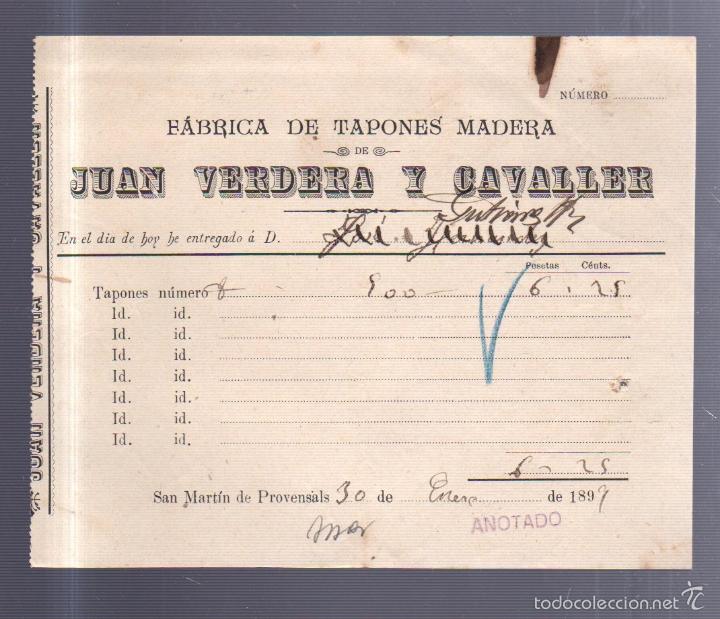 NÚMERO
FÁBRICA DE TAPONES MADERA
DE
JUAN VERDERA Y CAVALLER
En el dia de hoy he entregado á D. Gutiérrez
Pesetas Cénts.
Tapones número 8 500 6 . 25
Id. id.
Id. id.
Id. id.
Id. id.
Id. id.
Id. id.
Id. id.
6 - 25
San Martín de Provensals 30 de Enero de 1899
ANOTADO
JUAN VERDERA Y CAVALLER
todocoleccion.net